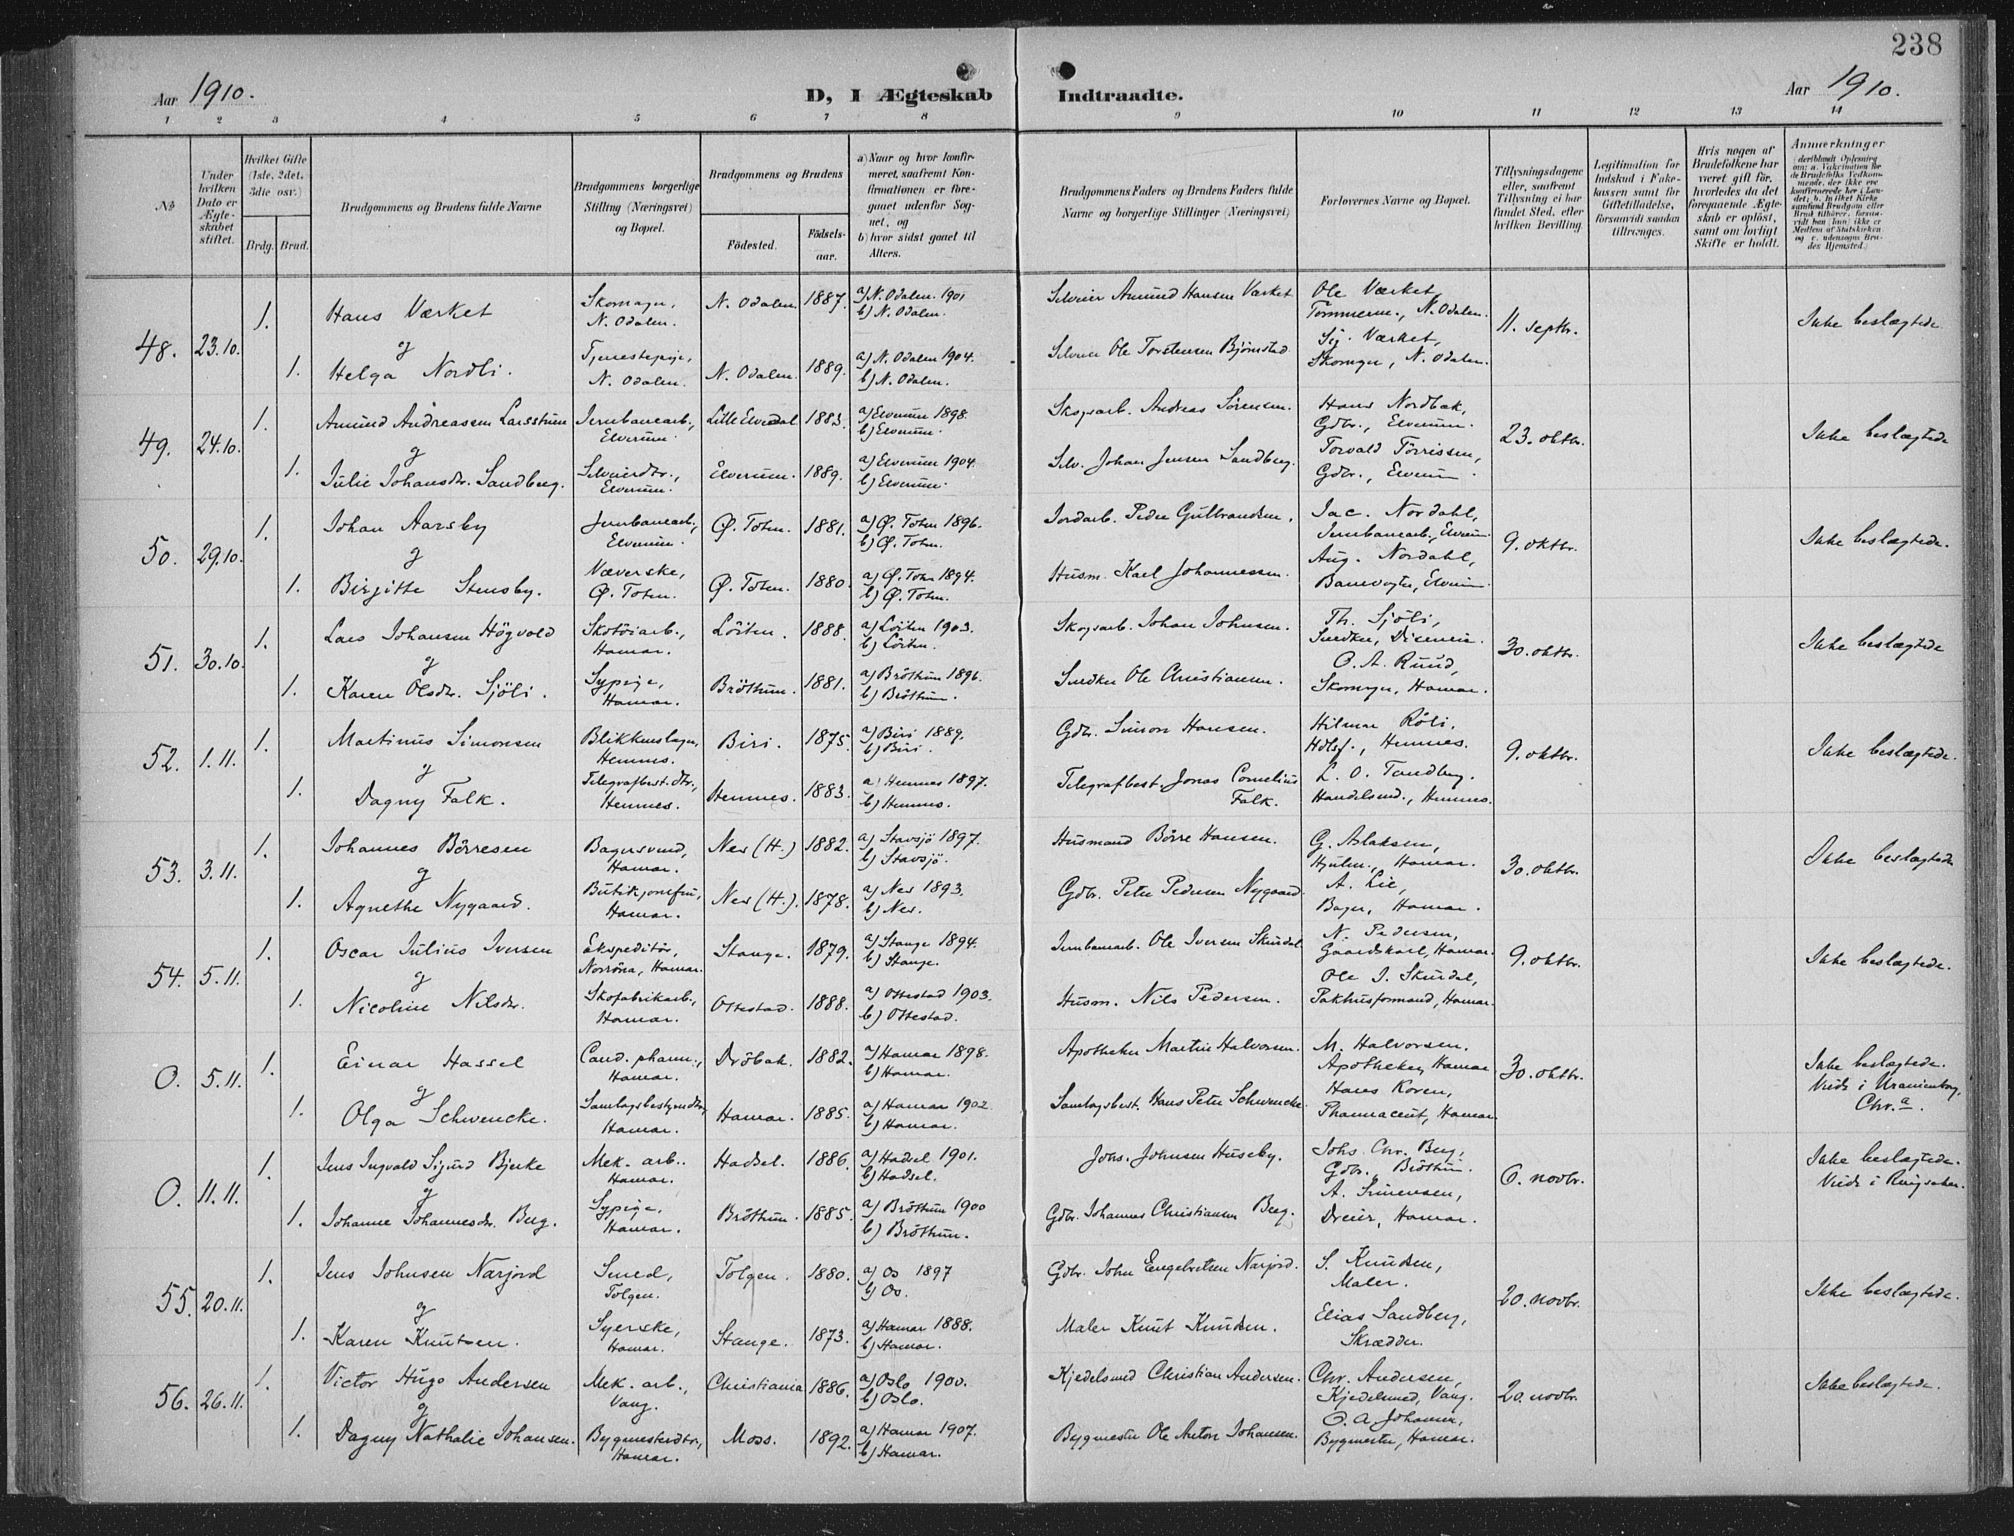 238
Aar 1910.
D, I Ægteskab Indtraadte.
Aar 1910.
1 2 3 4 5 6 7 8 9 10 11 12 13 14
No.
Under hvilken Dato er Ægteskabet stiftet.
Hvilket Gifte (1ste, 2det, 3die osv.)
Brdg. Brud.
Brudgommens og Brudens fulde Navne
Brudgommens borgerlige Stilling (Næringsvei) og Bopæl.
Brudgommens og Brudens
Födested. Födselsaar.
a) Naar og hvor konfirmeret, saafremt Konfirmationen er foregaaet udenfor Sognet, og
b) hvor sidst gaaet til Alters.
Brudgommens Faders og Brudens Faders fulde Navne og borgerlige Stillinger (Næringsvei)
Forlovernes Navne og Bopæl.
Tillysningsdagene eller, saafremt Tillysning ei har fundet Sted, efter hvilken Bevilling.
Legitimation for Indskud i Fakekassen samt for Giftetilladelse, forsaavidt saadan tiltrænges.
Hvis nogen af Brudefolkene har været gift för, hvorledes da det foregaaende Ægteskab er oplöst, samt om lovligt Skifte er holdt.
Anmærkninger
48. 23.10. 1. Hans Værket Skomager, N. Odalen. N. Odalen. 1887. a) N. Odalen. 1901 b) N. Odalen. Selveier Amund Hansen Værket Ole Værket, Tömmerm., N. Odalen. 11. septbr. Ikke beslægtede
og
1. Helga Nordli. Tjenestepige, N. Odalen. N. Odalen. 1889. a) N. Odalen 1904. b) N. Odalen. Selveier Ole Torstensen Björnstad Sig. Værket, Skomager, N. Odalen.
49. 24.10. 1. Amund Andreassen Larsstuen Jernbanearb., Elverum. Lille Elvedal 1883. a) Elverum 1898. b) Elverum. Skogsarb. Andreas Sörensen. Hans Nordbak, Gdbr., Elverum. 23. oktbr. Ikke beslægtede
og
1. Julie Johansdr. Sandberg. Selveierdtr., Elverum. Elverum. 1889. a) Elverum 1904. b) Elverum. Selv. Johan Jensen Sandberg. Torvald Törrissen, Gdbr., Elverum.
50. 29.10. 1. Johan Aarsby Jernbanearb., Elverum. Ø. Toten. 1881. a) Ø. Toten 1896. b) Ø. Toten. Jordarb. Peder Gulbrandsen. Jac. Nordahl, Jernbanearb., Elverum 9. oktbr. Ikke beslægtede.
og
1. Birgitte Stensby. Væverske, Ø. Toten. Ø. Toten. 1880. a) Ø. Toten 1894. b) Ø. Toten. Husm. Karl Johannessen. Aug. Nordahl, Banevogter, Elverum.
51. 30.10. 1. Lars Johansen Högvold Skotöiarb., Hamar. Löiten. 1888. a) Löiten 1903. b) Löiten. Skogsarb. Johan Johnsen. Th. Sjöli, Snedker, 30. oktbr. Ikke beslægtede
og
1. Karen Olsdr. Sjöli. Sypige, Hamar. Bröttum. 1881. a) Bröttum 1896. b) Bröttum. Snedker Ole Christiansen. O. A. Ruud, Skomager, Hamar.
52. 1.11. 1. Martinus Simonsen Blikkenslager, Hemnes. Biri. 1875. a) Biri 1889. b) Biri. Gdbr. Simon Hansen. Hilmar Röli, Hdlsf., Hemnes. 9. oktbr. Ikke beslægtede.
og
1. Dagny Falk. Telegrafbest. dtr., Hemnes. Hemnes. 1883. a) Hemnes 1897. b) Hemnes. Telegrafbest. Jonas Cornelius Falk. L. O. Tandberg. Handelsmd., Hemnes.
53. 3.11. 1. Johannes Börresen Bagersvend, Hamar. Nes (H.) 1882. a) Stavsjö 1897. b) Stavsjö. Husmand Börre Hansen. G. Aslaksen, Hjulm., Hamar. 30. oktbr. Ikke beslægtede
og
1. Agnethe Nygaard. Butikjomfru, Hamar. Nes (H.). 1878. a) Nes 1893. b) Nes. Gdbr. Peter Pedersen Nygaard A. Lie, Bager, Hamar.
54. 5.11. 1. Oscar Julius Iversen Ekspeditör, Norröna, Hamar. Stange. 1879. a) Stange 1894. b) Stange. Jernbanearb. Ole Iversen Skurdal N. Pedersen, Gaardskarl, Hamar. 9. oktbr. Ikke beslægtede.
og
1. Nicoline Nilsdr. Skofabrikarb., Hamar. Ottestad. 1888. a) Ottestad 1903. b) Ottestad. Husm. Nils Pedersen. Ole I. Skurdal, Pakhusformand, Hamar.
0. 5.11. 1. Einar Hassel Cand. pharm., Hamar. Dröbak. 1882. a) Hamar 1898. b) Hamar. Apotheker Martin Halvorsen. M. Halvorsen. Apotheker, Hamar 30. oktbr. Ikke beslægtede. Viede i Uranienborg, Chr.a.
og
1. Olga Schwencke. Samlagsbestyrerdtr., Hamar. Hamar. 1885. a) Hamar 1902. b) Hamar. Samlagsbest. Hans Peter Schwencke Hans Koren, Pharmaceut, Hamar.
0. 11.11. 1. Jens Ingvald Sigurd Bjerke Mek. arb., Hamar. Hadsel. 1886. a) Hadsel 1901. b) Hadsel. Johs. Johnsen Huseby. Johs. Chr. Berg, Gdbr., Bröttum. 6. novbr. Ikke beslægtede. Viede i Ringsaker.
og
1. Johanne Johannesdr. Berg. Sypige, Hamar. Bröttum. 1885. a) Bröttum 1900 b) Bröttum. Gdbr. Johannes Christiansen Berg. A. Simensen, Dreier, Hamar.
55. 20.11. 1. Jens Johnsen Narjord Smed, Tolgen. Tolgen. 1880. a) Os 1897 b) Os. Gdbr. John Engebretsen Narjord. S. Knudsen, Maler. 20. novbr. Ikke beslægtede.
og
1. Karen Knutsen. Syerske, Hamar. Stange. 1873. a) Hamar 1888. b) Hamar. Maler Knut Knudsen. Elias Sandberg, Skrædder.
56. 26.11. 1. Victor Hugo Andersen Mek. arb., Vang. Christiania 1886. a) Oslo 1900. b) Oslo. Kjedelsmed Christian Andersen. Chr. Andersen, Kjedelsmed, Vang. 20. novbr. Ikke beslægtede.
og
1. Dagny Nathalie Johansen. Bygmesterdtr., Hamar. Moss. 1892. a) Hamar 1907. b) Hamar. Bygmester Ole Anton Johansen. O. A. Johansen, Bygmester, Hamar.